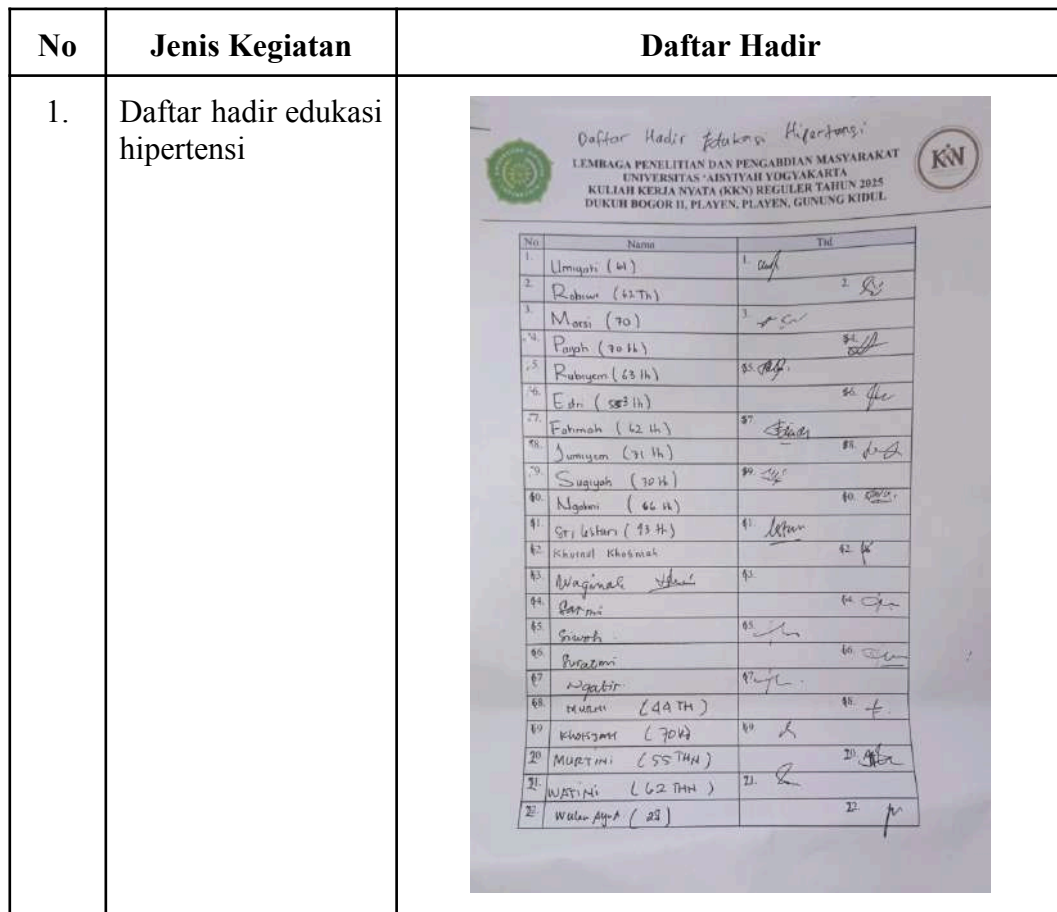 No Jenis Kegiatan Daftar Hadir
1. Daftar hadir edukasi
hipertensi
Daftar Hadir Edukasi Hipertensi
LEMBAGA PENELITIAN DAN PENGABDIAN MASYARAKAT
UNIVERSITAS 'AISYIYAH YOGYAKARTA
KULIAH KERJA NYATA (KKN) REGULER TAHUN 2025
DUKUH BOGOR II, PLAYEN, PLAYEN, GUNUNG KIDUL
KKN
No Nama Ttd
1. Umiyati (61) 1.
2. (62 Th) 2.
3. Marsi (70) 3.
4. (70 th) 4.
5. Rubiyem (63 th) 5.
6. Edri 6.
7. Fatimah (62 th) 7.
8. Jumiyem (71 th) 8.
9. Sugiyah (70 th) 9.
10. (66 th) 10.
11. Sri lestari 11.
12. Khusnul 12.
13. Waginah 13.
14. Sarmi 14.
15. 15.
16. Suratmi 16.
17. Ngatir 17.
18. MURNI (44 TH) 18.
19 (70 th) 19
20 MURTINI (55 THN) 20.
21. WATINI (62 THN) 21.
22. Wulan (23) 22